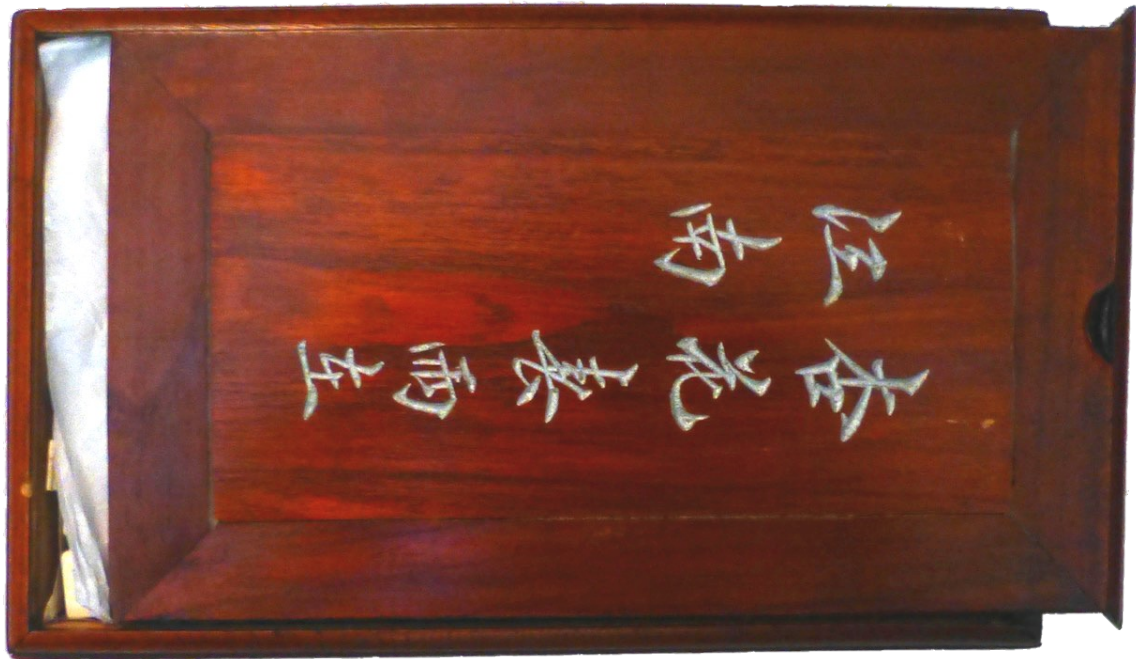 杏花春雨在
江南